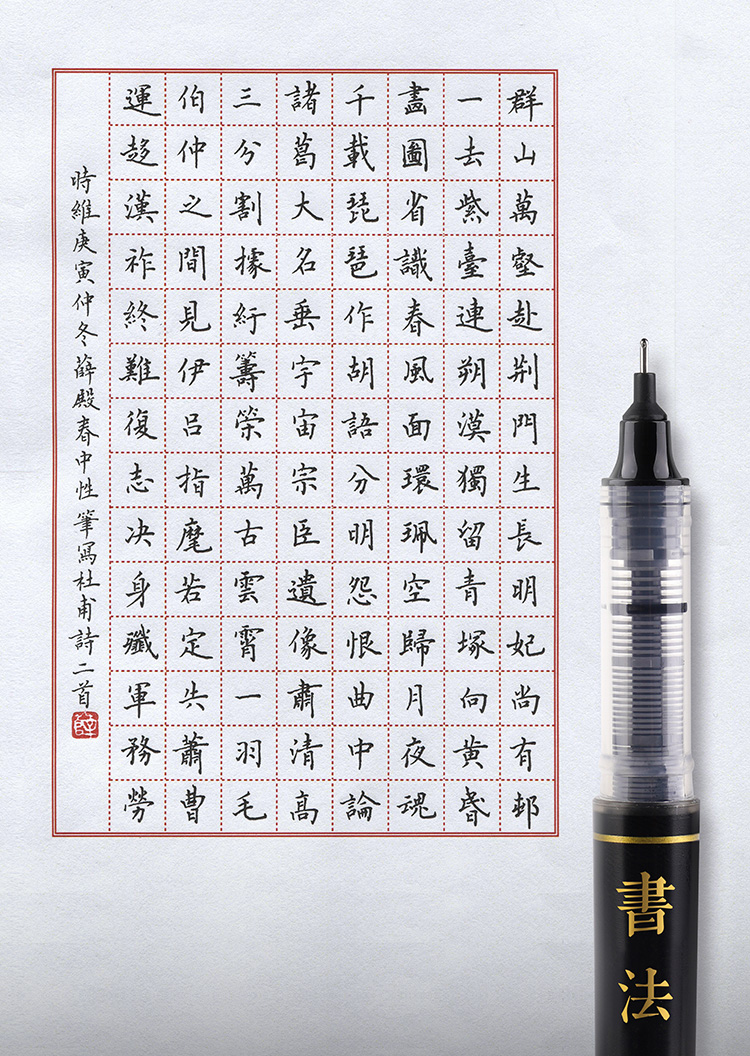 群山萬壑赴荆門生長明妃尚有邨
一去紫臺連朔漠獨留青塚向黄昬
畫圖省識春風面環珮空歸月夜魂
千載琵琶作胡語分明怨恨曲中論
諸葛大名垂宇宙宗臣遺像肅清高
三分割據紆籌策萬古雲霄一羽毛
伯仲之間見伊吕指麾若定失蕭曹
運移漢祚終難復志决身殲軍務勞
時維庚寅仲冬薛殿春中性筆寫杜甫詩二首
薛
書法